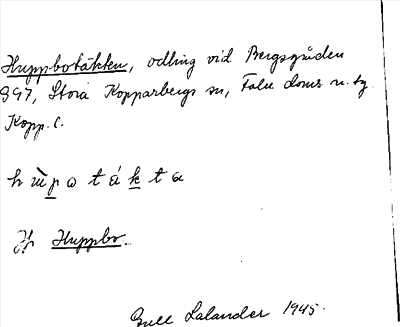 Huppbotäkten, odling vid Bergsgården
897, Stora Kopparbergs sn, Falu doms. n. tg.
Kopp. l.
Jfr Huppbo.
Gull Lalander 1945.